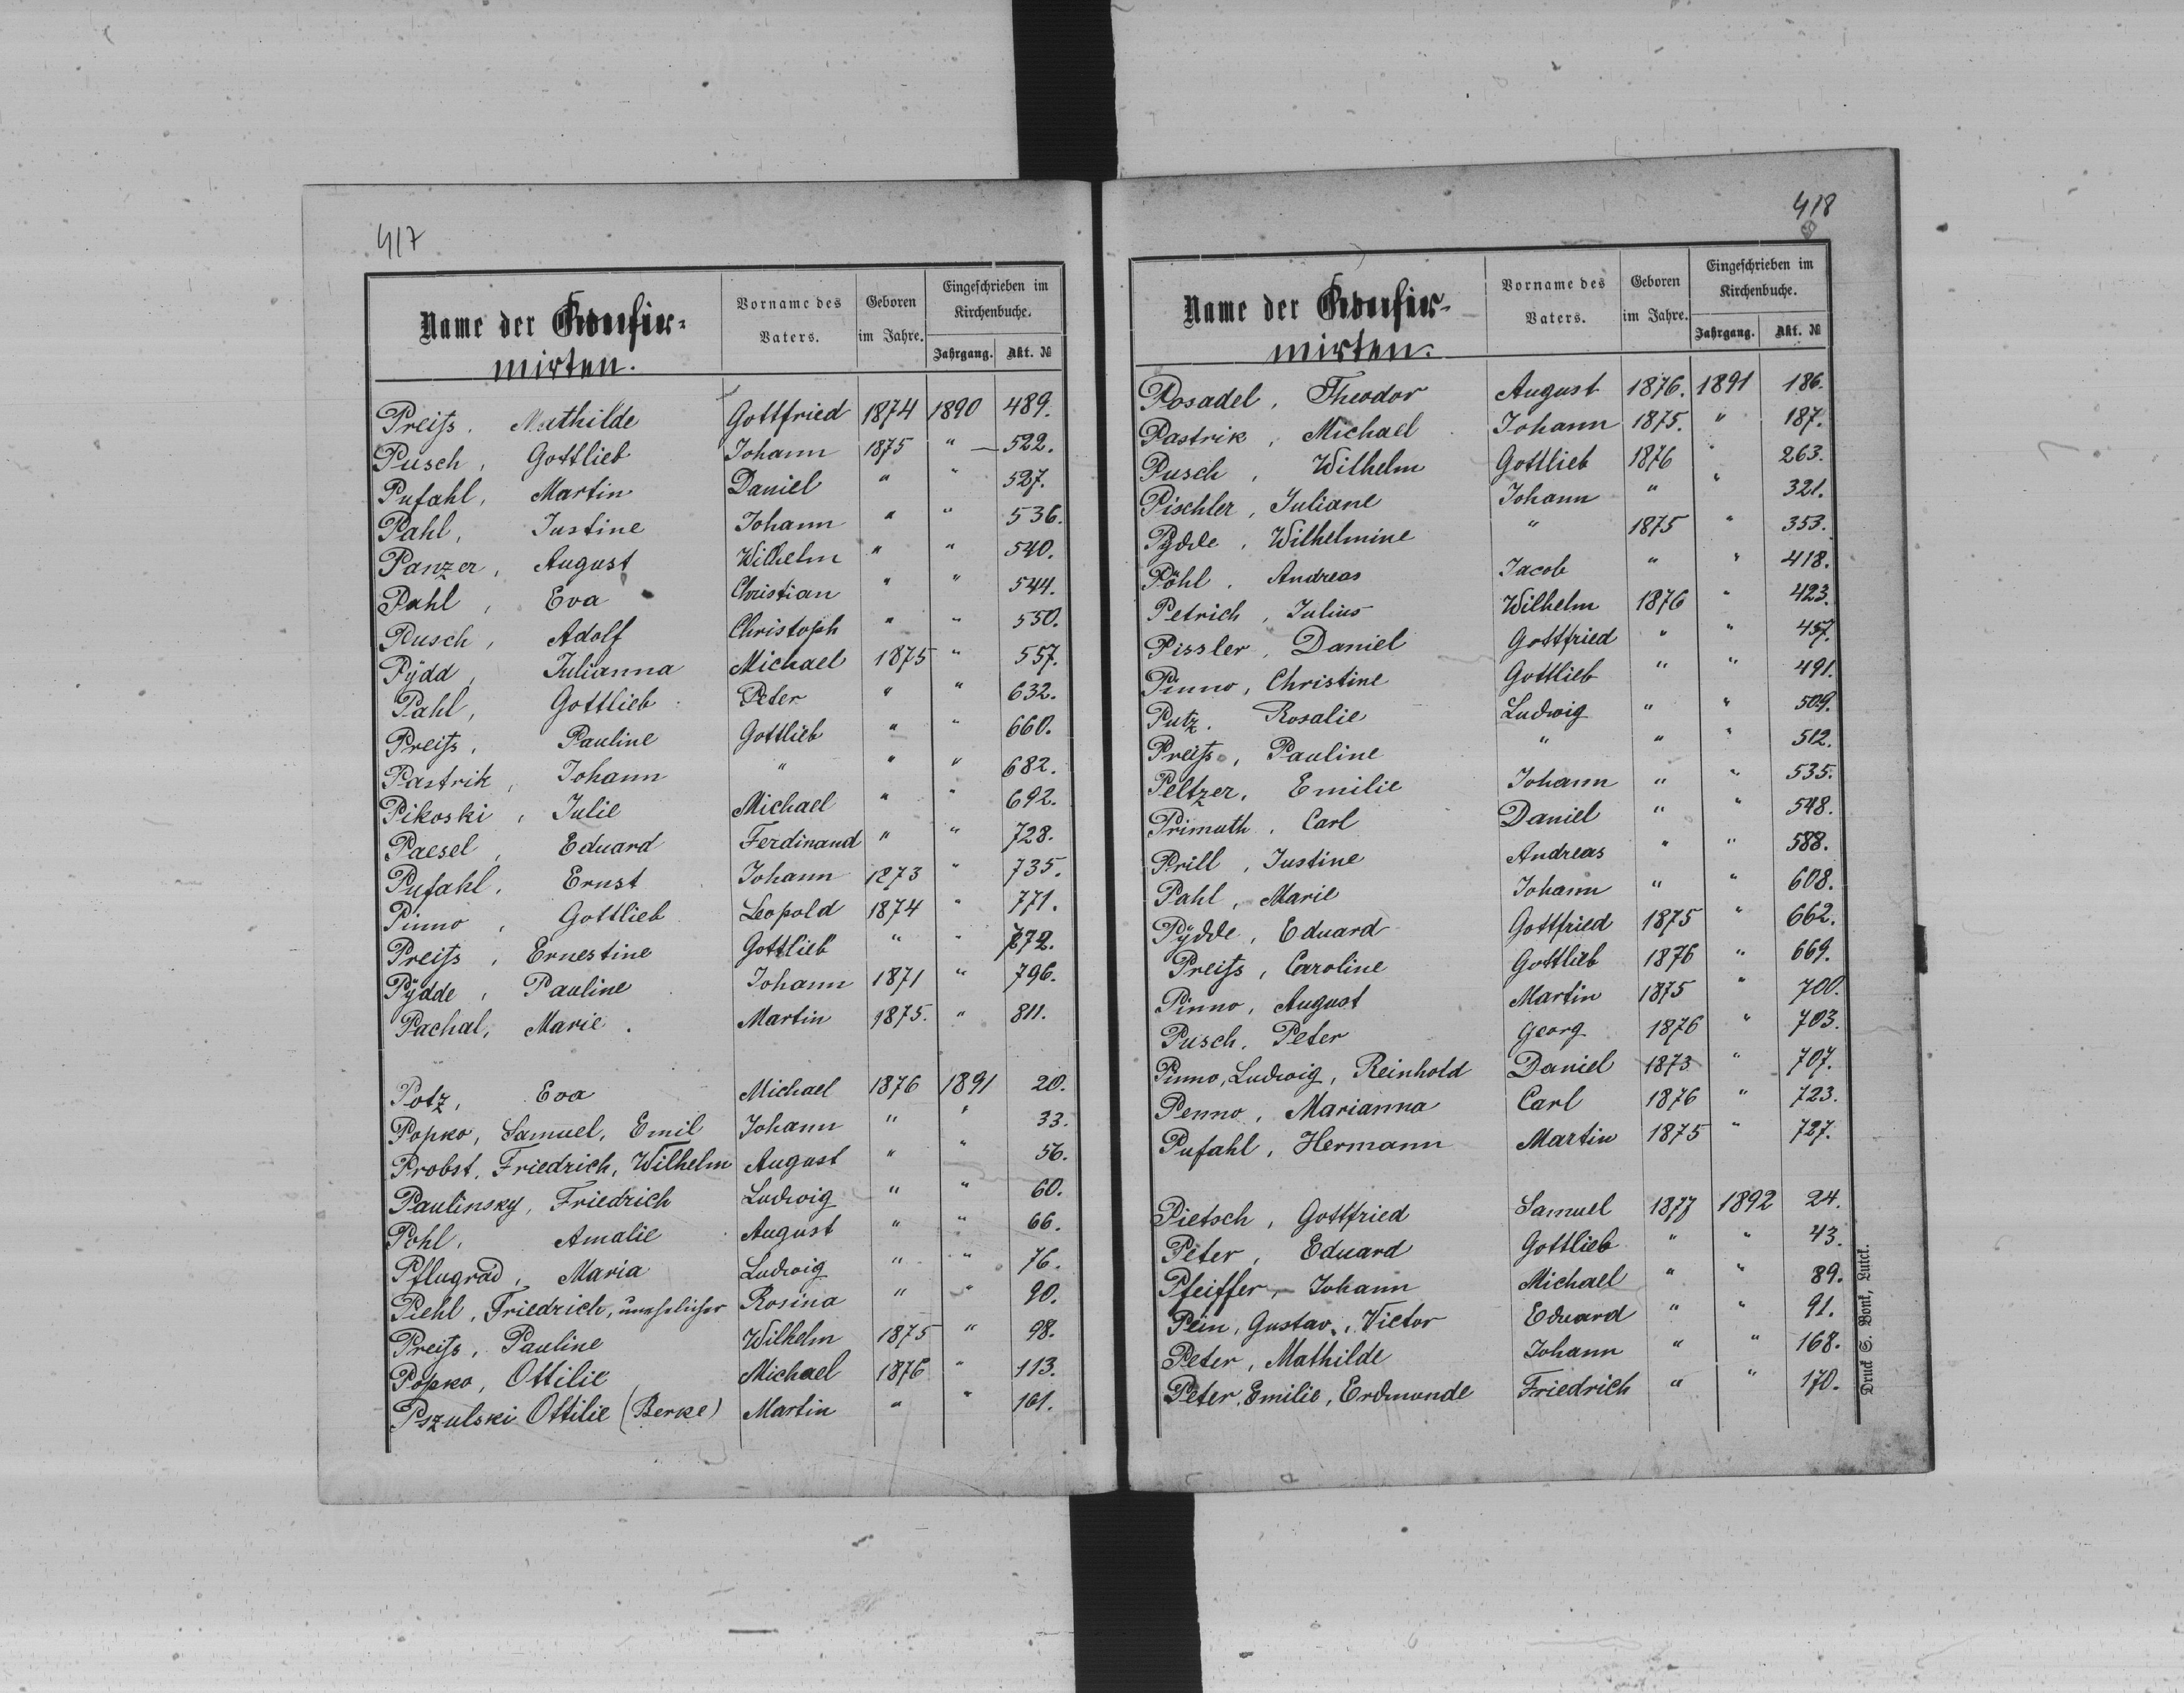 417
Name der Confir-
mirten.
Vorname des Vaters.
Geboren im Jahre.
Eingeschrieben im Kirchenbuche.
Jahrgang. Akt. №
Preiß, Mathilde Gottfried 1874 1890 489.
Pusch, Gottlieb Johann 1875 " 522.
Pufahl, Martin Daniel " " 527.
Pahl, Justine Johann " " 536.
Panzer, August Wilhelm " " 540.
Pahl, Eva Christian " " 544.
Pusch, Adolf Christoph " " 550.
Pÿdd, Julianna Michael 1875 " 557.
Pahl, Gottlieb Peter " " 632.
Preiß, Pauline Gottlieb " " 660.
Pastrik, Johann " " " 682.
Pikoski, Julie Michael " " 692.
Paesel, Eduard Ferdinand " " 728.
Pufahl, Ernst Johann 1873 " 735.
Pinno, Gottlieb Leopold 1874 " 771.
Preiß, Ernestine Gottlieb " " 772.
Pÿdde, Pauline Johann 1871 " 796.
Pachal, Marie. Martin 1875. " 811.
Potz, Eva Michael 1876 1891 20.
Popko, Samuel, Emil Johann " " 33.
Probst, Friedrich, Wilhelm August " " 56.
Paulinsky, Friedrich Ludwig " " 60.
Pohl, Amalie August " " 66.
Pflugrad, Maria Ludwig " " 76.
Piehl, Friedrich, unehelicher Rosina " " 90.
Preiß, Pauline Wilhelm 1875 " 98.
Popko, Ottilie Michael 1876 " 113.
Pszulski Ottilie (Berke) Martin " " 161.
418
Name der Confir-
mirten.
Vorname des Vaters.
Geboren im Jahre.
Eingeschrieben im Kirchenbuche.
Jahrgang. Akt. №
Posadel, Theodor August 1876. 1891 186.
Pastrik, Michael Johann 1875. " 187.
Pusch, Wilhelm Gottlieb 1876 " 263.
Pischler, Juliane Johann " " 321.
Pÿdde, Wilhelmine " 1875 " 353.
Pöhl, Andreas Jacob " " 418.
Petrich, Julius Wilhelm 1876 " 423.
Pissler, Daniel Gottfried " " 457.
Pinno, Christine Gottlieb " " 491.
Putz, Rosalie Ludwig " " 509.
Preiß, Pauline " " " 512.
Peltzer, Emilie Johann " " 535.
Primuth, Carl Daniel " " 548.
Prill, Justine Andreas " " 588.
Pahl, Marie Johann " " 608.
Pÿdde, Eduard Gottfried 1875 " 662.
Preiß, Caroline Gottlieb 1876 " 669.
Pinno, August Martin 1875 " 700.
Pusch, Peter Georg 1876 " 703.
Pinno, Ludwig, Reinhold Daniel 1873 " 707.
Penno, Marianna Carl 1876 " 723.
Pufahl, Hermann Martin 1875 " 727.
Pietsch, Gottfried Samuel 1877 1892 24.
Peter, Eduard Gottlieb " " 43.
Pfeiffer, Johann Michael " " 89.
Pein, Gustav, Victor Eduard " " 91.
Peter, Mathilde Johann " " 168.
Peter, Emilie, Erdmunde Friedrich " " 170.
Druck S. Bonk, Luck.